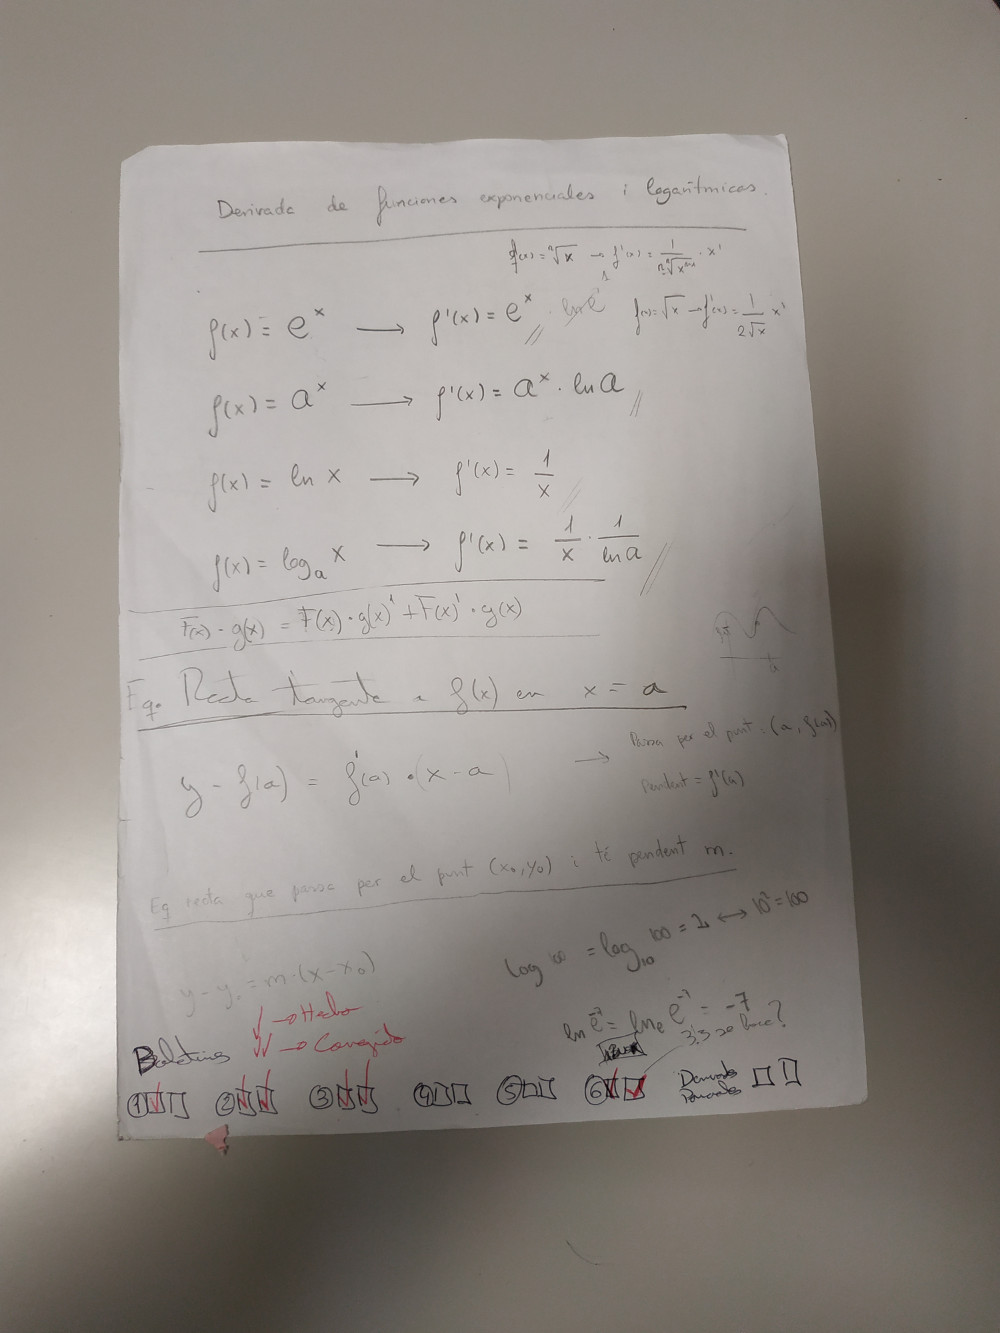 Derivada de funciones exponenciales i logarítmicas.
f(x) = ⁿ√x → f'(x) = 1/(n ⁿ√xⁿ⁻¹) · x'
f(x) = eˣ → f'(x) = eˣ · ln e 1
f(x) = √x → f'(x) = 1/(2√x) x'
f(x) = aˣ → f'(x) = aˣ · ln a
f(x) = ln x → f'(x) = 1/x
f(x) = logₐ x → f'(x) = 1/x · 1/ln a
F(x) · g(x) = F(x) · g(x)' + F(x)' · g(x)
Eq. Recta tangente a f(x) en x = a
y - f(a) = f'(a) · (x - a) → Passa per el punt (a, f(a))
Pendent = f'(a)
Eq recta que passa per el punt (x₀, y₀) i té pendent m.
y - y₀ = m · (x - x₀)
log 100 = log₁₀ 100 = 2 ↔ 10² = 100
ln e⁻⁷ = lnₑ e⁻⁷ = -7
√ → Hecho
√√ → Corregido
3.3 se hace?
Boletines
① ② ③ ④ ⑤ ⑥ Derivadas